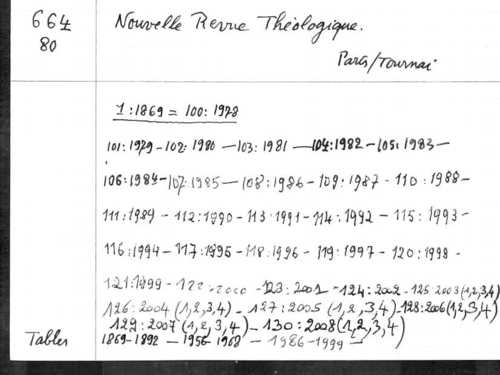 664
80
Nouvelle Revue Théologique.
Paris/Tournai
1:1869 = 100:1978
101:1979 - 102:1980 - 103:1981 - 104:1982 - 105:1983 -
106:1984 - 107:1985 - 108:1986 - 109:1987 - 110:1988 -
111:1989 - 112:1990 - 113:1991 - 114:1992 - 115:1993 -
116:1994 - 117:1995 - 118:1996 - 119:1997 - 120:1998 -
121:1999 - 122:2000 - 123:2001 - 124:2002 - 125:2003(1,2,3,4)
126:2004(1,2,3,4) - 127:2005(1,2,3,4) - 128:2006(1,2,3,4)
129:2007(1,2,3,4) - 130:2008(1,2,3,4)
Tables 1869-1892 - 1956-1968 - 1986-1999 -